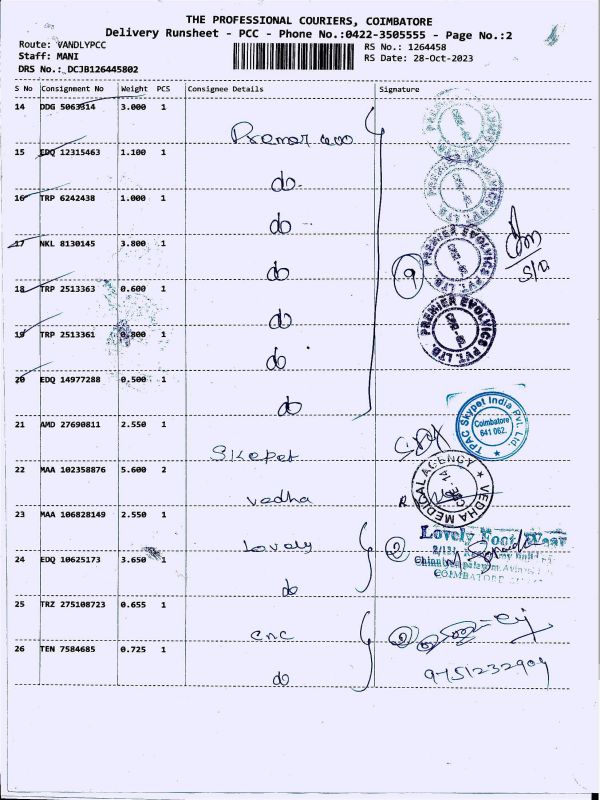 THE PROFESSIONAL COURIERS, COIMBATORE
Delivery Runsheet - PCC - Phone No.:0422-3505555 - Page No.:2
Route: VANDLYPCC
RS No.: 1264458
Staff: MANI
RS Date: 28-Oct-2023
DRS No.: DCJB126445802
S No Consignment No Weight PCS Consignee Details Signature
14 DDG 5063914 3.000 1
Premier
15 EDQ 12315463 1.100 1
do
16 TRP 6242438 1.000 1
do
17 NKL 8130145 3.800 1
do
9
PREMIER EVOLVICS PVT. LTD.
CBE-18
18 TRP 2513363 0.600 1
do
PREMIER EVOLVICS PVT. LTD.
CBE-18
19 TRP 2513361 0.800 1
do
20 EDQ 14977288 0.500 1
do
21 AMD 27690811 2.550 1
Skepet
TPAC Skypet India Pvt. Ltd.
Coimbatore
641 062.
22 MAA 102358876 5.600 2
vedha
VEDHA MEDICAL AGENCY
CBE-14
23 MAA 106828149 2.550 1
Lovely
2
Lovely Foot Wear
COIMBATORE
24 EDQ 10625173 3.650 1
do
25 TRZ 275108723 0.655 1
cnc
2
26 TEN 7584685 0.725 1
do
9751232904